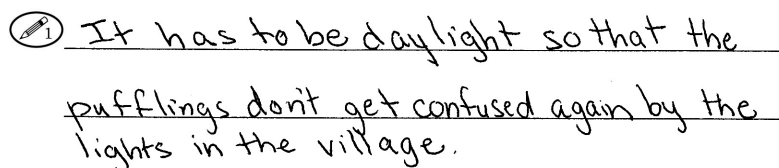 1 It has to be daylight so that the
pufflings don't get confused again by the
lights in the village.